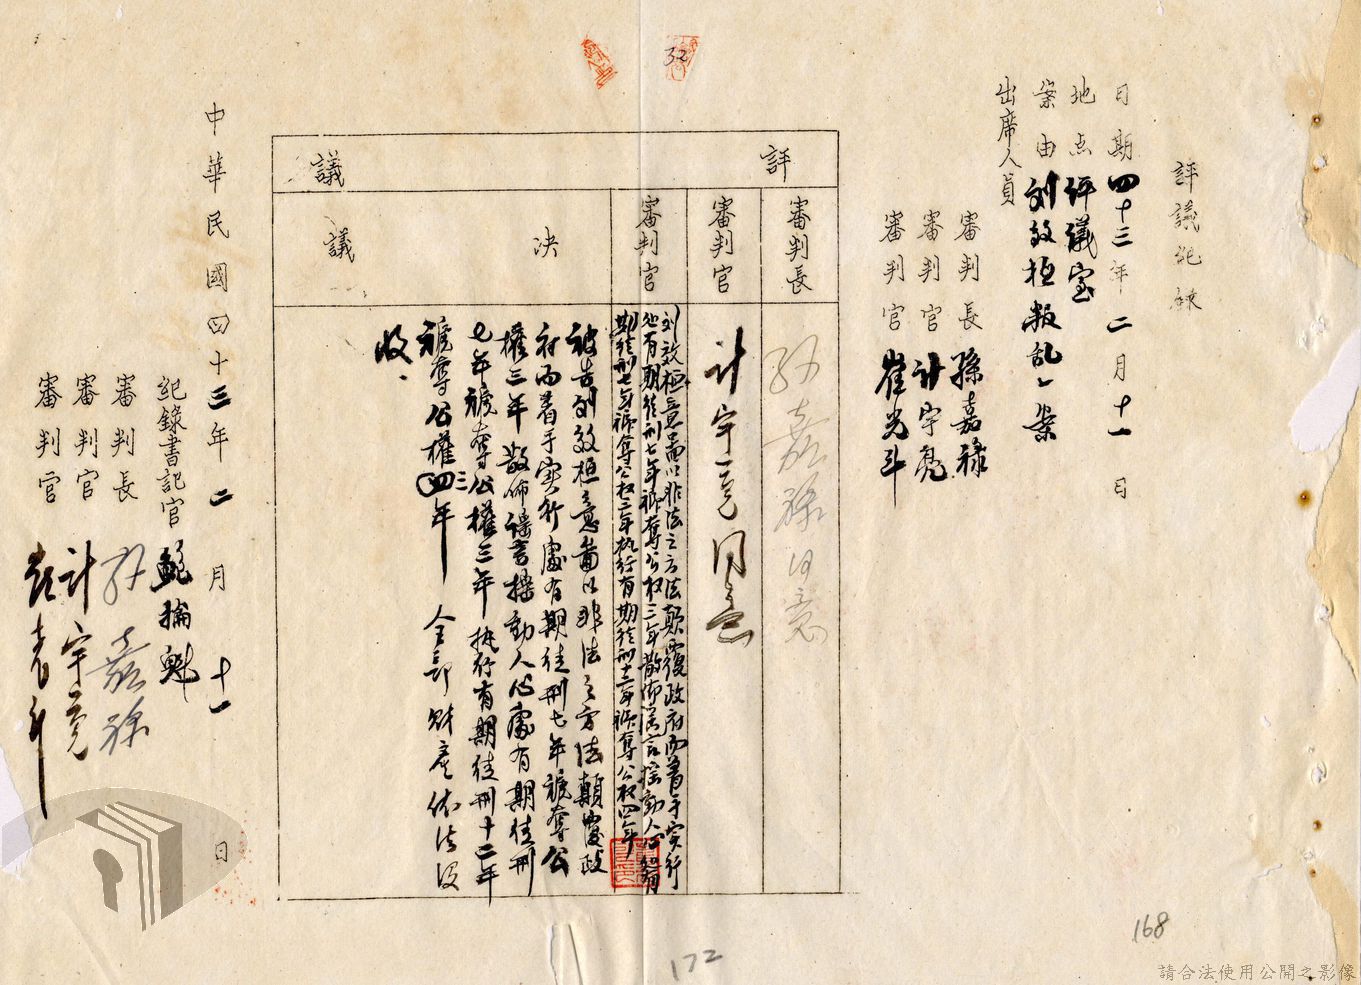 評議紀錄
日期四十三年二月十一日
地点評議室
案由刘效桓叛乱一案
出席人員
審判長孫嘉祿
審判官計宇亮
審判官崔光斗
32
評議
審判長
孫嘉祿 同意
審判官
計宇亮 同意
審判官
刘效桓意圖以非法之方法顛覆政府而着手實行
處有期徒刑七年褫奪公权三年散佈謠言搖動人心處有
期徒刑七年褫奪公权三年执行有期徒刑十二年褫奪公权四年
決議
被告刘效桓意圖以非法之方法顛覆政
府而着手实行處有期徒刑七年褫奪公
權三年散佈謠言搖動人心處有期徒刑
七年褫奪公權三年执行有期徒刑十二年
褫奪公權四年 全部財產依法沒
收、
中華民國四十三年二月十一日
紀錄書記官鮑掄魁
審判長孫嘉祿
審判官計宇亮
審判官
168
172
請合法使用公開之影像